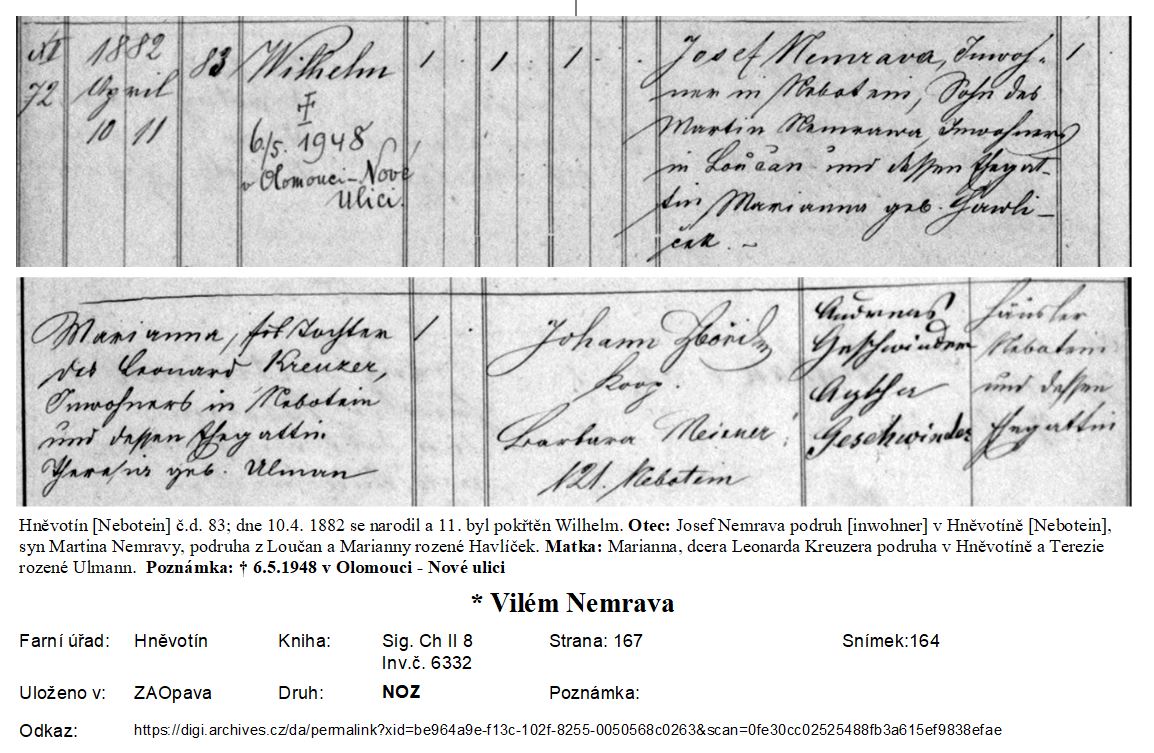 XI 1882 83 Wilhelm 1 1 1 Josef Nemrava, Inwoh-
72 April ner in Nebotein, Sohn des
10 11 Martin Nemrawa, Inwohners
in Loučan und dessen Ehegat-
tin Marianna geb. Hawli-
ček. 1
†
6/5. 1948
v Olomouci-Nové
Ulici.
Marianna, Tochter
des Leonard Kreuzer,
Inwohners in Nebotein
und dessen Ehegattin
Theresia geb. Ulman
1
Johann
Koop.
Barbara
121. Nebotein
Andreas
Geschwinder
Geschwinder
Häusler
Nebotein
und dessen
Ehegattin
Hněvotín [Nebotein] č.d. 83; dne 10.4. 1882 se narodil a 11. byl pokřtěn Wilhelm. Otec: Josef Nemrava podruh [inwohner] v Hněvotíně [Nebotein],
syn Martina Nemravy, podruha z Loučan a Marianny rozené Havlíček. Matka: Marianna, dcera Leonarda Kreuzera podruha v Hněvotíně a Terezie
rozené Ulmann. Poznámka: † 6.5.1948 v Olomouci - Nové ulici
* Vilém Nemrava
Farní úřad: Hněvotín Kniha: Sig. Ch II 8 Strana: 167 Snímek:164
Inv.č. 6332
Uloženo v: ZAOpava Druh: NOZ Poznámka:
Odkaz: https://digi.archives.cz/da/permalink?xid=be964a9e-f13c-102f-8255-0050568c0263&scan=0fe30cc02525488fb3a615ef9838efae